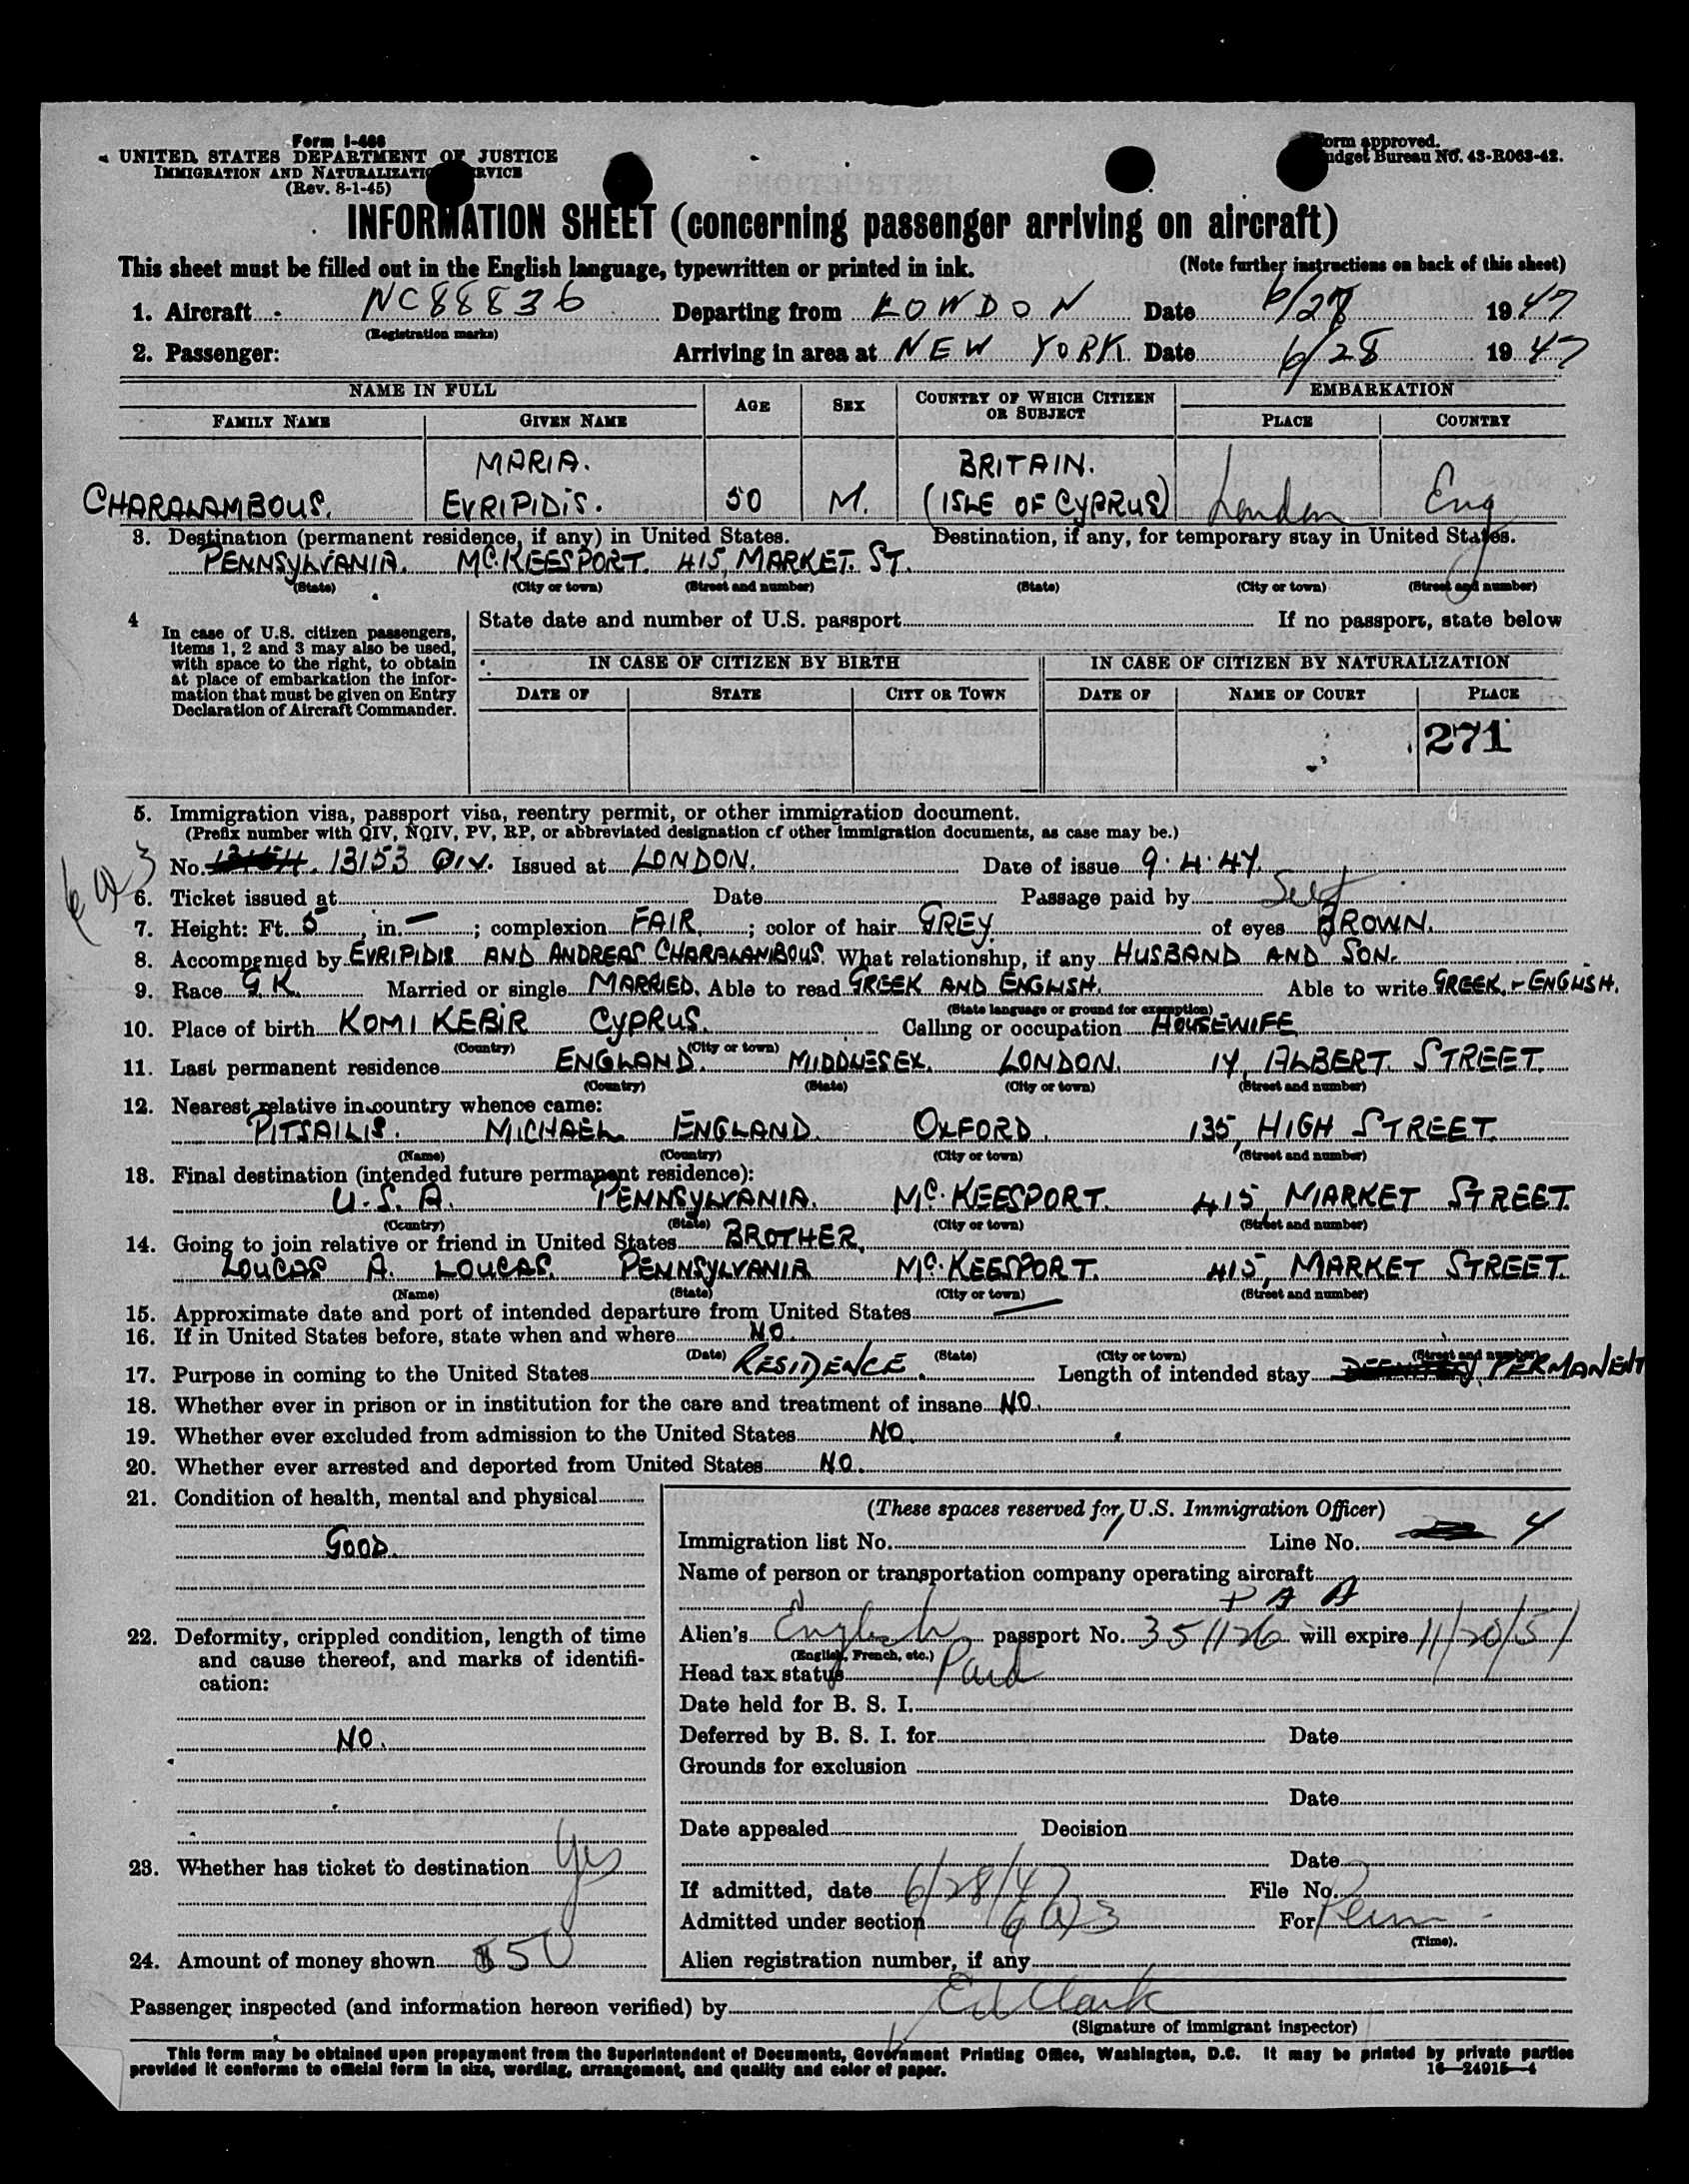 Form I-466
UNITED STATES DEPARTMENT OF JUSTICE
IMMIGRATION AND NATURALIZATION SERVICE
(Rev. 8-1-45)
Form approved.
Budget Bureau No. 43-R063-42.
INFORMATION SHEET (concerning passenger arriving on aircraft)
This sheet must be filled out in the English language, typewritten or printed in ink. (Note further instructions on back of this sheet)
1. Aircraft NC88836 Departing from LONDON Date 6/27 1947
(Registration marks)
2. Passenger: Arriving in area at NEW YORK Date 6/28 1947
NAME IN FULL AGE SEX COUNTRY OF WHICH CITIZEN OR SUBJECT EMBARKATION
FAMILY NAME GIVEN NAME PLACE COUNTRY
MARIA. BRITAIN.
CHARALAMBOUS. EVRIPIDIS. 50 M. (ISLE OF CYPRUS) London Eng
3. Destination (permanent residence, if any) in United States. Destination, if any, for temporary stay in United States.
PENNSYLVANIA. Mc.KEESPORT. 415, MARKET. ST.
(State) (City or town) (Street and number) (State) (City or town) (Street and number)
4 In case of U.S. citizen passengers, items 1, 2 and 3 may also be used, with space to the right, to obtain at place of embarkation the information that must be given on Entry Declaration of Aircraft Commander.
State date and number of U.S. passport If no passport, state below
IN CASE OF CITIZEN BY BIRTH IN CASE OF CITIZEN BY NATURALIZATION
DATE OF STATE CITY OR TOWN DATE OF NAME OF COURT PLACE
271
5. Immigration visa, passport visa, reentry permit, or other immigration document.
(Prefix number with QIV, NQIV, PV, RP, or abbreviated designation of other immigration documents, as case may be.)
6 (a) 3
No. 13153 QIV. Issued at LONDON. Date of issue 9.4.47.
6. Ticket issued at Date Passage paid by Self
7. Height: Ft. 5, in. —; complexion FAIR.; color of hair GREY. of eyes BROWN.
8. Accompanied by EVRIPIDIS AND ANDREAS CHARALAMBOUS. What relationship, if any HUSBAND AND SON.
9. Race G.K. Married or single MARRIED. Able to read GREEK AND ENGLISH. Able to write GREEK.- ENGLISH.
(State language or ground for exemption)
10. Place of birth KOMI KEBIR CYPRUS. Calling or occupation HOUSEWIFE
(Country) (City or town)
11. Last permanent residence ENGLAND. MIDDLESEX. LONDON. 14, ALBERT. STREET.
(Country) (State) (City or town) (Street and number)
12. Nearest relative in country whence came:
PITSAILIS. MICHAEL ENGLAND. OXFORD. 135, HIGH STREET.
(Name) (Country) (City or town) (Street and number)
13. Final destination (intended future permanent residence):
U.S.A. PENNSYLVANIA. Mc.KEESPORT. 415, MARKET STREET.
(Country) (State) (City or town) (Street and number)
14. Going to join relative or friend in United States BROTHER.
LOUCAS A. LOUCAS. PENNSYLVANIA Mc.KEESPORT. 415, MARKET STREET.
(Name) (State) (City or town) (Street and number)
15. Approximate date and port of intended departure from United States —
16. If in United States before, state when and where NO.
(Date) (State) (City or town) (Street and number)
17. Purpose in coming to the United States RESIDENCE. Length of intended stay PERMANENT
18. Whether ever in prison or in institution for the care and treatment of insane NO.
19. Whether ever excluded from admission to the United States NO
20. Whether ever arrested and deported from United States NO.
21. Condition of health, mental and physical
GOOD.
22. Deformity, crippled condition, length of time and cause thereof, and marks of identification:
NO.
23. Whether has ticket to destination Yes
24. Amount of money shown $50
(These spaces reserved for U.S. Immigration Officer)
Immigration list No. 1 Line No. 4
Name of person or transportation company operating aircraft
P A A
Alien's English passport No. 351126 will expire 11/20/51
(English, French, etc.)
Head tax status Paid
Date held for B. S. I.
Deferred by B. S. I. for Date
Grounds for exclusion
Date
Date appealed Decision
Date
If admitted, date 6/28/47 File No.
Admitted under section 6(a)3 For Perm
(Time).
Alien registration number, if any
Passenger inspected (and information hereon verified) by Ed Clark
(Signature of immigrant inspector)
This form may be obtained upon prepayment from the Superintendent of Documents, Government Printing Office, Washington, D.C. It may be printed by private parties
provided it conforms to official form in size, wording, arrangement, and quality and color of paper. 16—24915-4